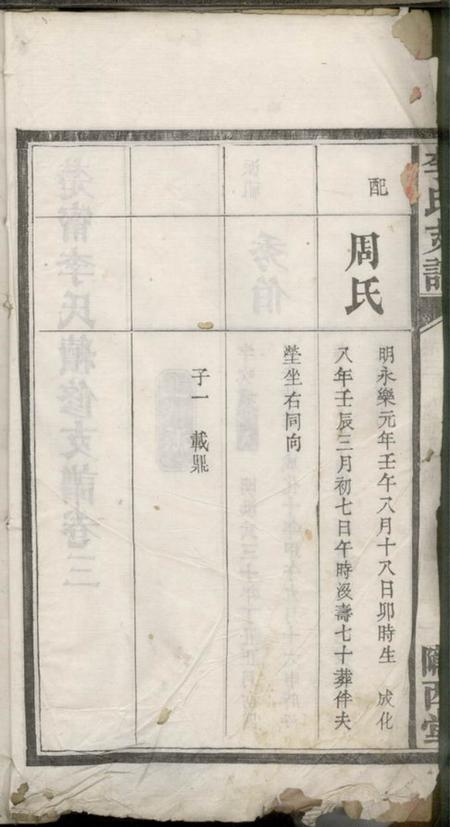 李氏支譜
隴西堂
配
周氏
明永樂元年壬午八月十八日卯時生 成化
八年壬辰三月初七日午時沒壽七十葬伴夫
塋坐右同向
子一 載鼎